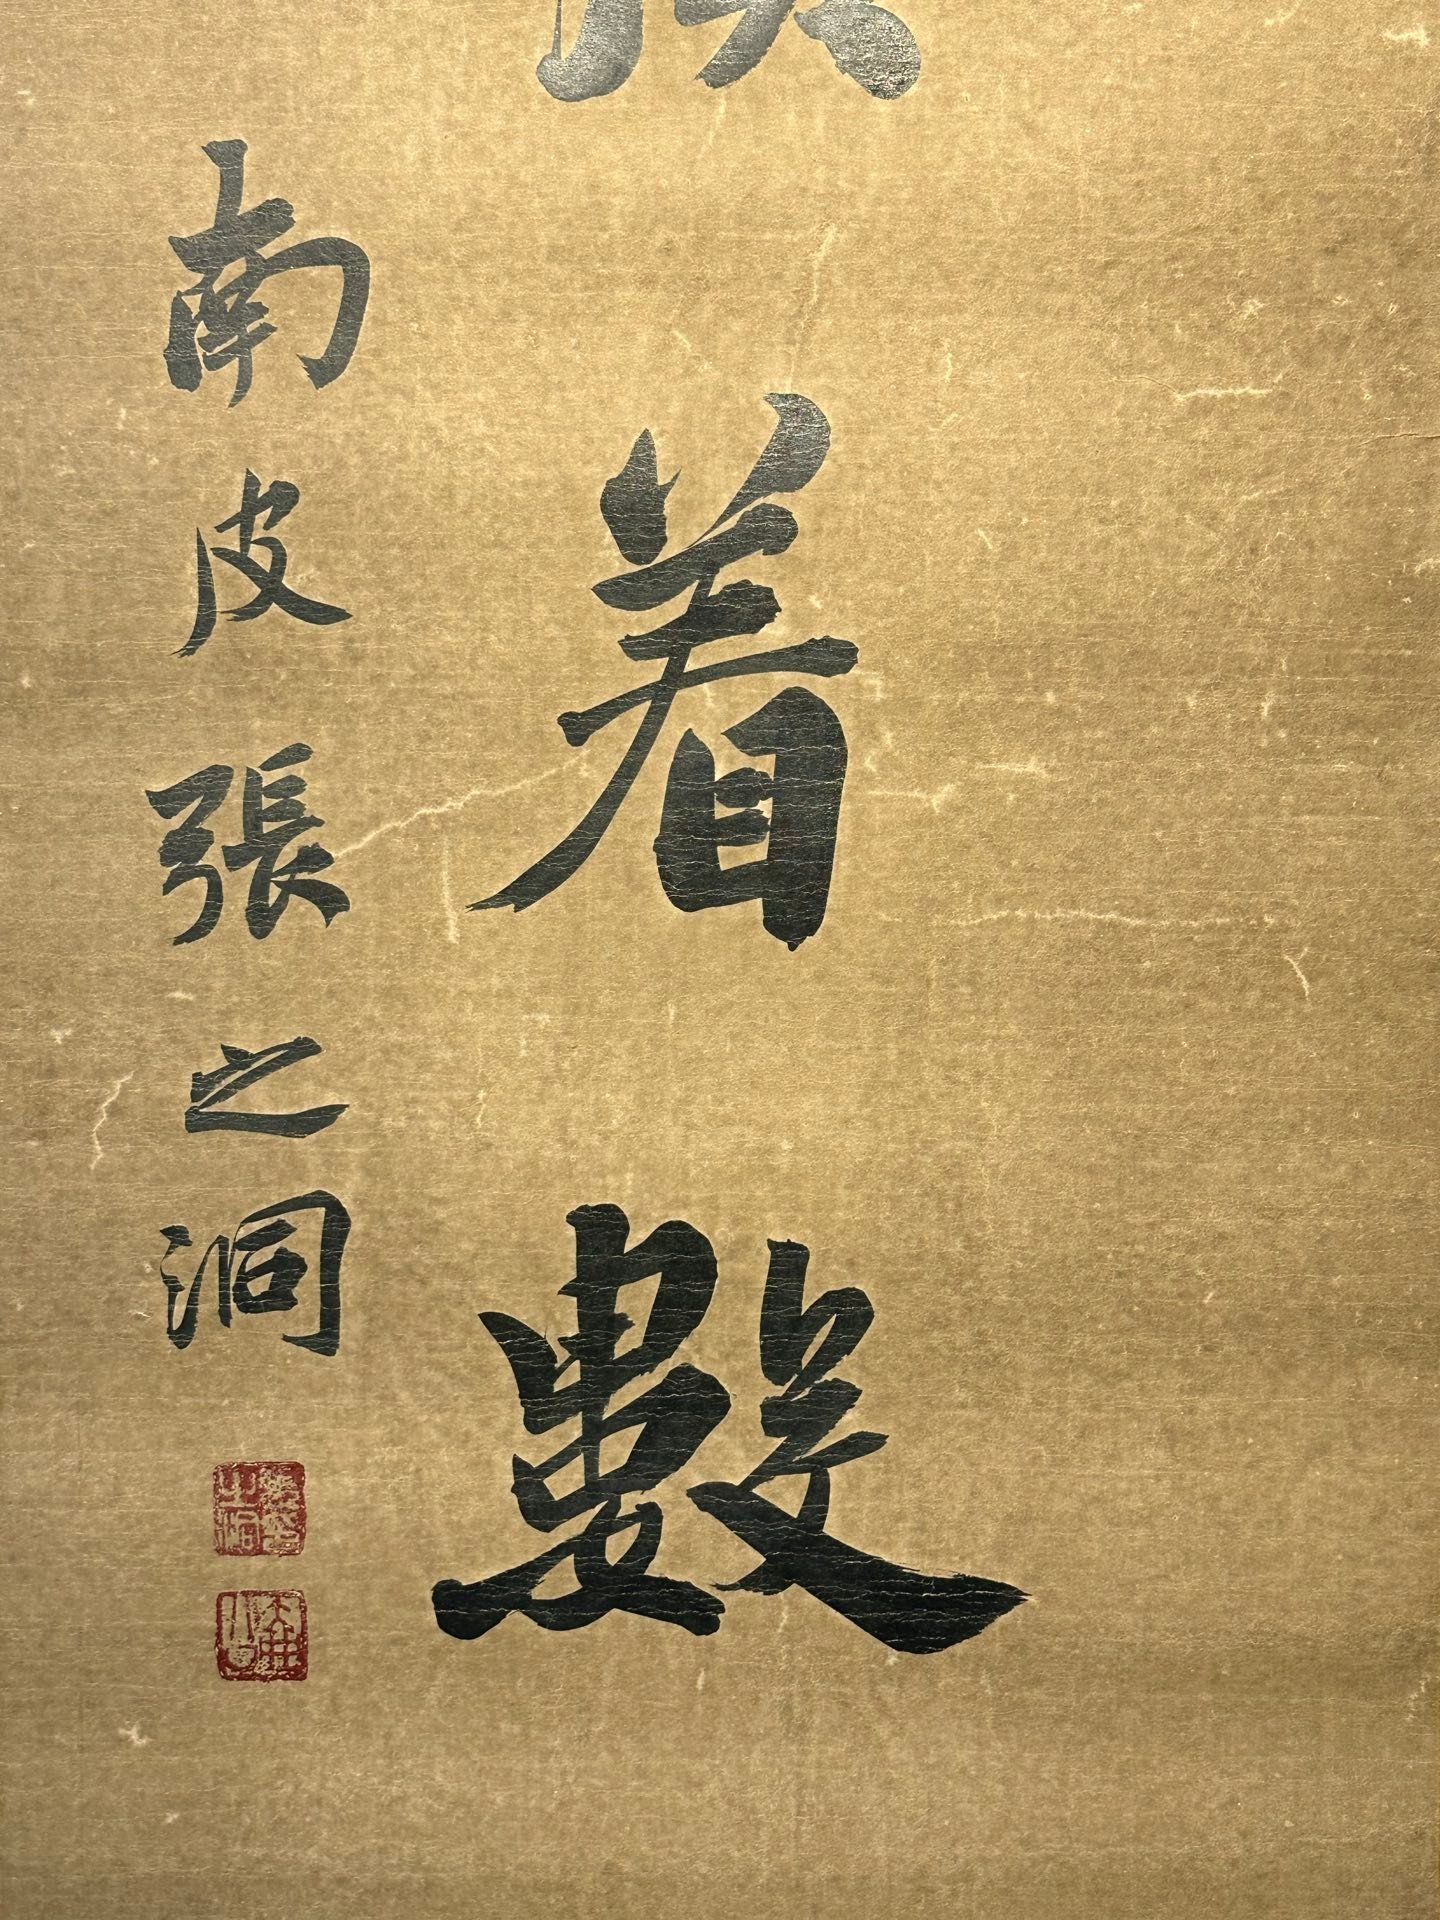 着數
南皮張之洞